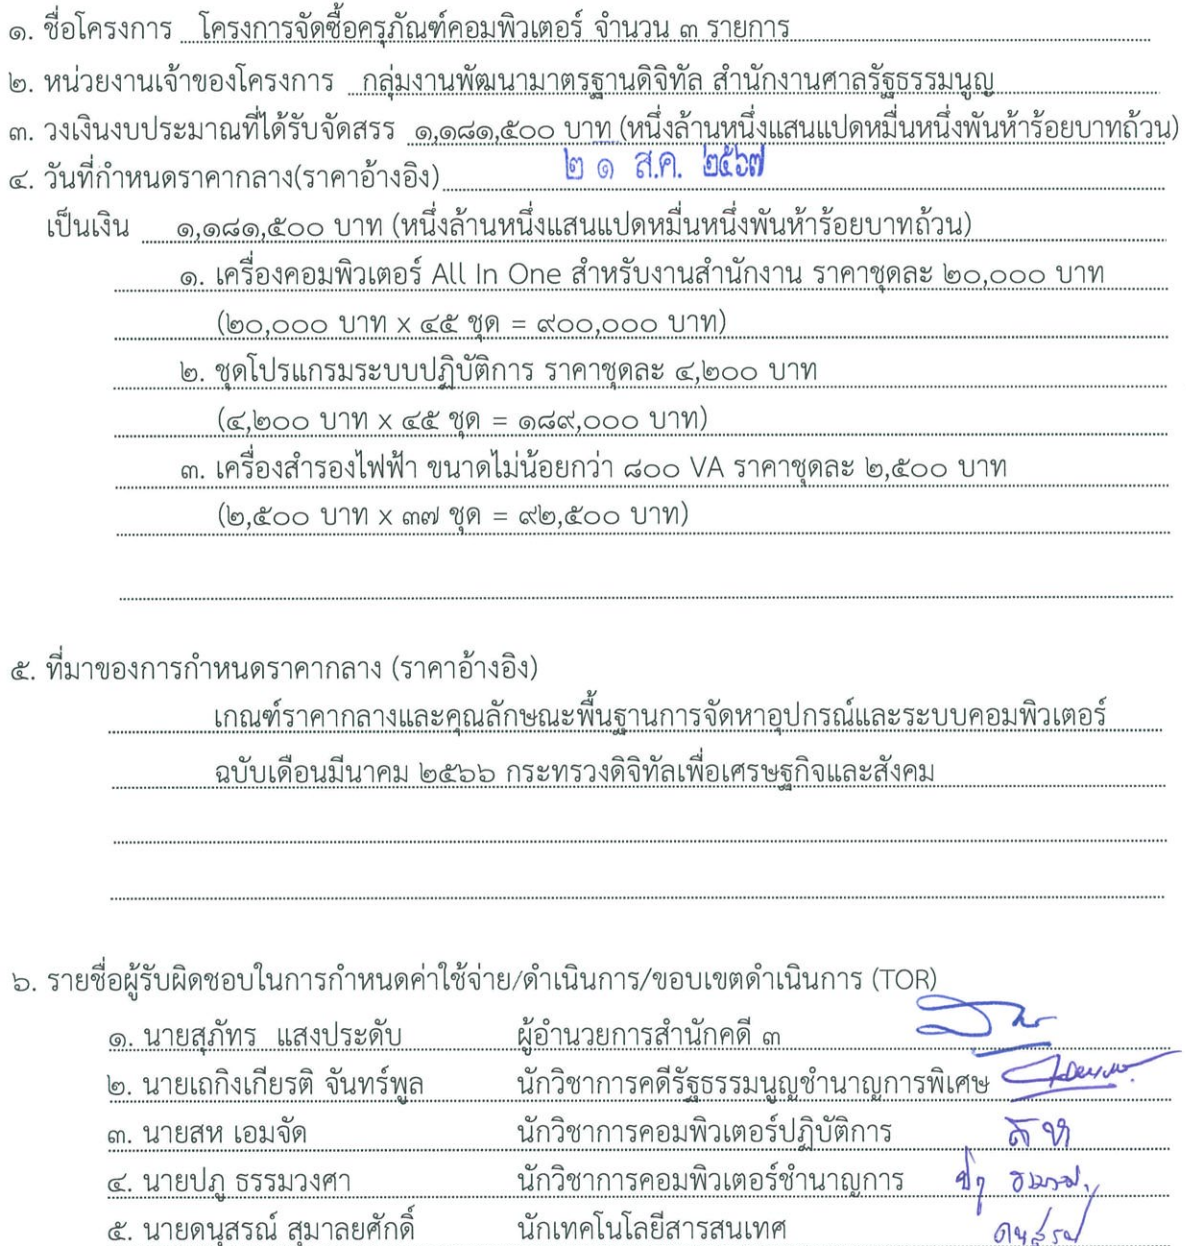 ๑. ชื่อโครงการ โครงการจัดซื้อครุภัณฑ์คอมพิวเตอร์ จำนวน ๓ รายการ
๒. หน่วยงานเจ้าของโครงการ กลุ่มงานพัฒนามาตรฐานดิจิทัล สำนักงานศาลรัฐธรรมนูญ
๓. วงเงินงบประมาณที่ได้รับจัดสรร ๑,๑๘๑,๕๐๐ บาท (หนึ่งล้านหนึ่งแสนแปดหมื่นหนึ่งพันห้าร้อยบาทถ้วน)
๔. วันที่กำหนดราคากลาง(ราคาอ้างอิง) ๒๑ ส.ค. ๒๕๖๗
เป็นเงิน ๑,๑๘๑,๕๐๐ บาท (หนึ่งล้านหนึ่งแสนแปดหมื่นหนึ่งพันห้าร้อยบาทถ้วน)
๑. เครื่องคอมพิวเตอร์ All In One สำหรับงานสำนักงาน ราคาชุดละ ๒๐,๐๐๐ บาท
(๒๐,๐๐๐ บาท x ๔๕ ชุด = ๙๐๐,๐๐๐ บาท)
๒. ชุดโปรแกรมระบบปฏิบัติการ ราคาชุดละ ๔,๒๐๐ บาท
(๔,๒๐๐ บาท x ๔๕ ชุด = ๑๘๙,๐๐๐ บาท)
๓. เครื่องสำรองไฟฟ้า ขนาดไม่น้อยกว่า ๘๐๐ VA ราคาชุดละ ๒,๕๐๐ บาท
(๒,๕๐๐ บาท x ๓๗ ชุด = ๙๒,๕๐๐ บาท)
๕. ที่มาของการกำหนดราคากลาง (ราคาอ้างอิง)
เกณฑ์ราคากลางและคุณลักษณะพื้นฐานการจัดหาอุปกรณ์และระบบคอมพิวเตอร์
ฉบับเดือนมีนาคม ๒๕๖๖ กระทรวงดิจิทัลเพื่อเศรษฐกิจและสังคม
๖. รายชื่อผู้รับผิดชอบในการกำหนดค่าใช้จ่าย/ดำเนินการ/ขอบเขตดำเนินการ (TOR)
๑. นายสุภัทร แสงประดับ ผู้อำนวยการสำนักคดี ๓
๒. นายเถกิงเกียรติ จันทร์พูล นักวิชาการคดีรัฐธรรมนูญชำนาญการพิเศษ
๓. นายสห เอมจัด นักวิชาการคอมพิวเตอร์ปฏิบัติการ
๔. นายปภู ธรรมวงศา นักวิชาการคอมพิวเตอร์ชำนาญการ
๕. นายดนุสรณ์ สุมาลยศักดิ์ นักเทคโนโลยีสารสนเทศ